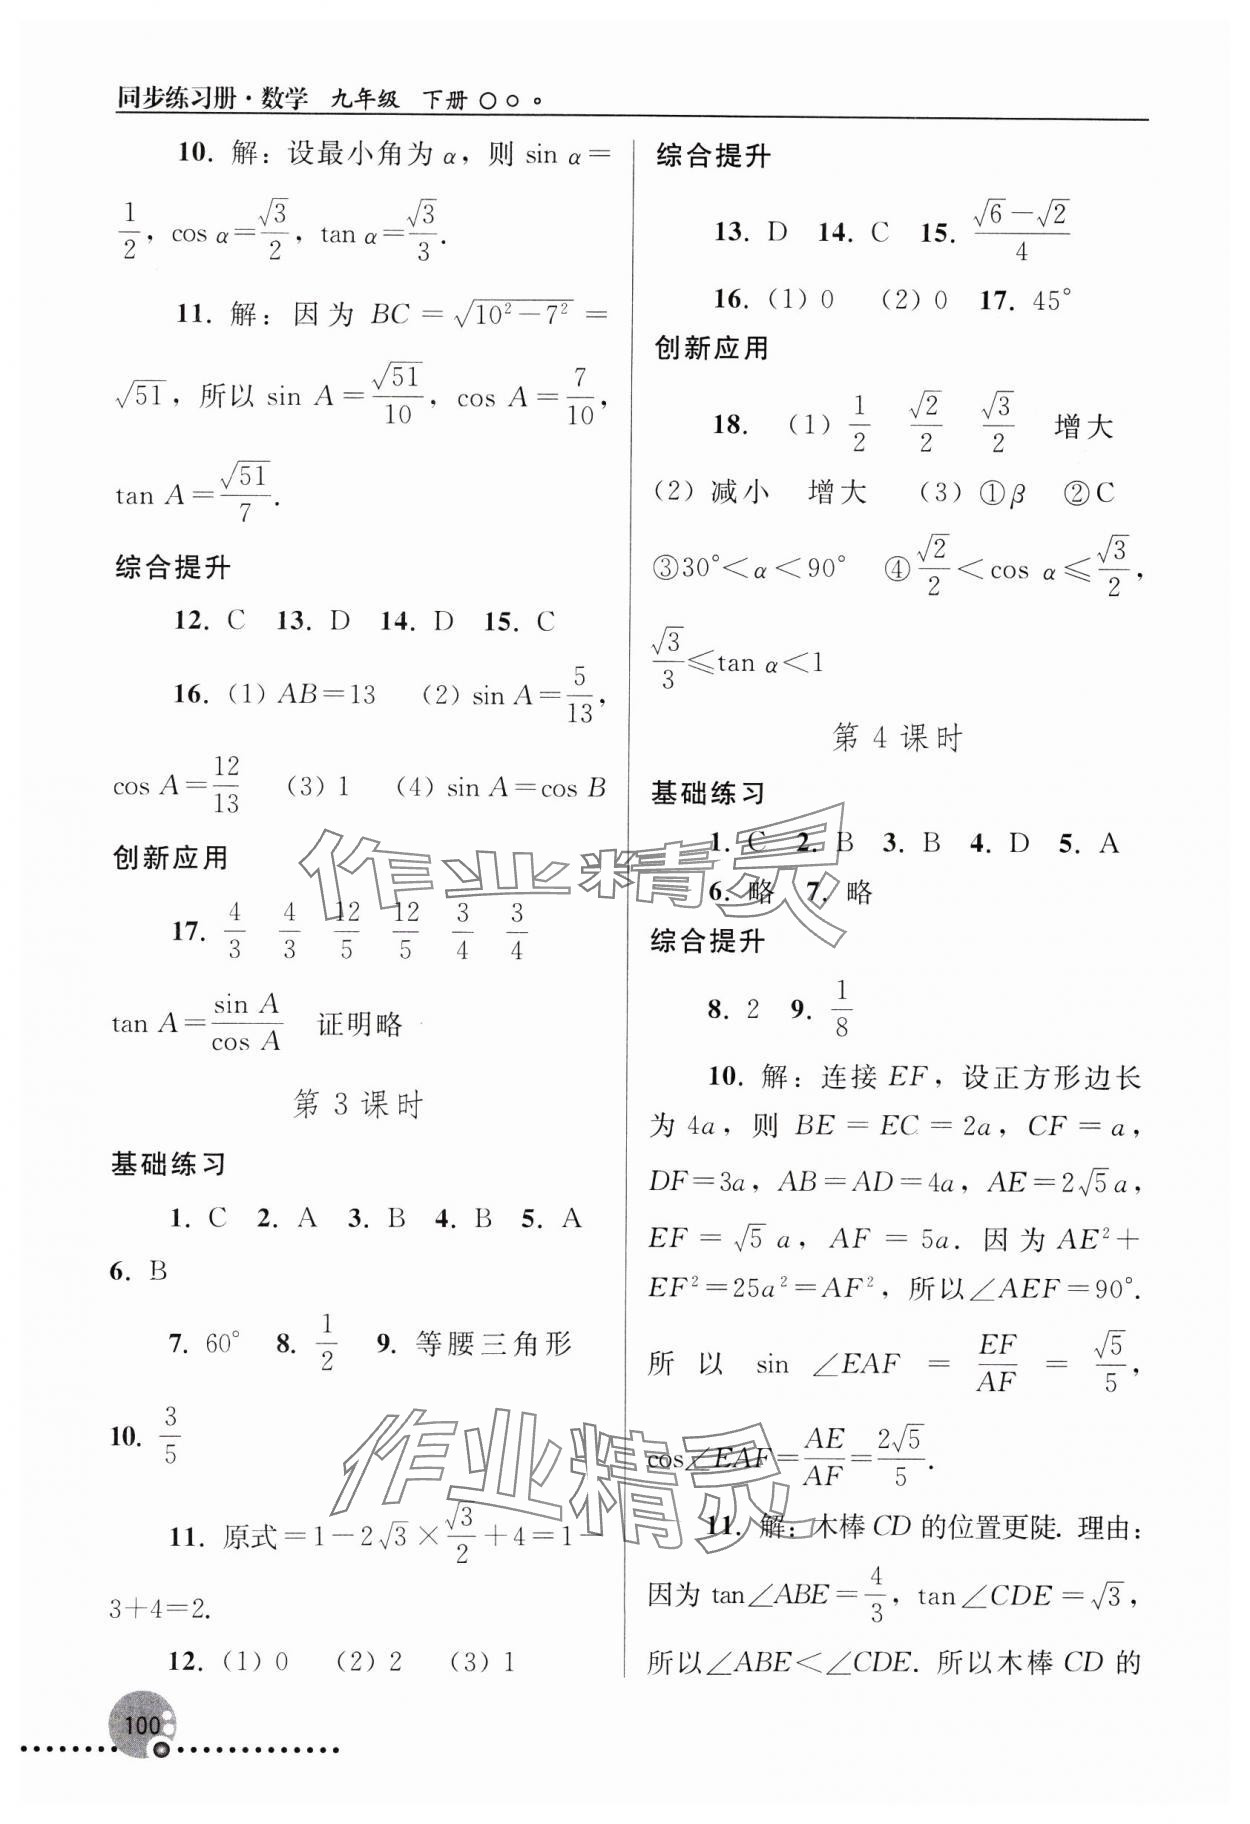 同步练习册·数学 九年级 下册
10. 解：设最小角为 α，则 sin α＝
1/2，cos α＝√3/2，tan α＝√3/3.
11. 解：因为 BC＝√(10²－7²)＝
√51，所以 sin A＝√51/10，cos A＝7/10，
tan A＝√51/7.
综合提升
12. C 13. D 14. D 15. C
16. (1) AB＝13 (2) sin A＝5/13，
cos A＝12/13 (3) 1 (4) sin A＝cos B
创新应用
17. 4/3 4/3 12/5 12/5 3/4 3/4
tan A＝sin A/cos A 证明略
第 3 课时
基础练习
1. C 2. A 3. B 4. B 5. A
6. B
7. 60° 8. 1/2 9. 等腰三角形
10. 3/5
11. 原式＝1－2√3×√3/2＋4＝1－
3＋4＝2.
12. (1) 0 (2) 2 (3) 1
100
综合提升
13. D 14. C 15. (√6－√2)/4
16. (1) 0 (2) 0 17. 45°
创新应用
18. (1) 1/2 √2/2 √3/2 增大
(2) 减小 增大 (3) ①β ②C
③30°＜α＜90° ④√2/2＜cos α≤√3/2，
√3/3≤tan α＜1
第 4 课时
基础练习
1. C 2. B 3. B 4. D 5. A
6. 略 7. 略
综合提升
8. 2 9. 1/8
10. 解：连接 EF，设正方形边长
为 4a，则 BE＝EC＝2a，CF＝a，
DF＝3a，AB＝AD＝4a，AE＝2√5a，
EF＝√5a，AF＝5a. 因为 AE²＋
EF²＝25a²＝AF²，所以∠AEF＝90°.
所以 sin∠EAF＝EF/AF＝√5/5，
cos∠EAF＝AE/AF＝2√5/5.
11. 解：木棒 CD 的位置更陡. 理由：
因为 tan∠ABE＝4/3，tan∠CDE＝√3，
所以∠ABE＜∠CDE. 所以木棒 CD 的
作业精灵
作业精灵